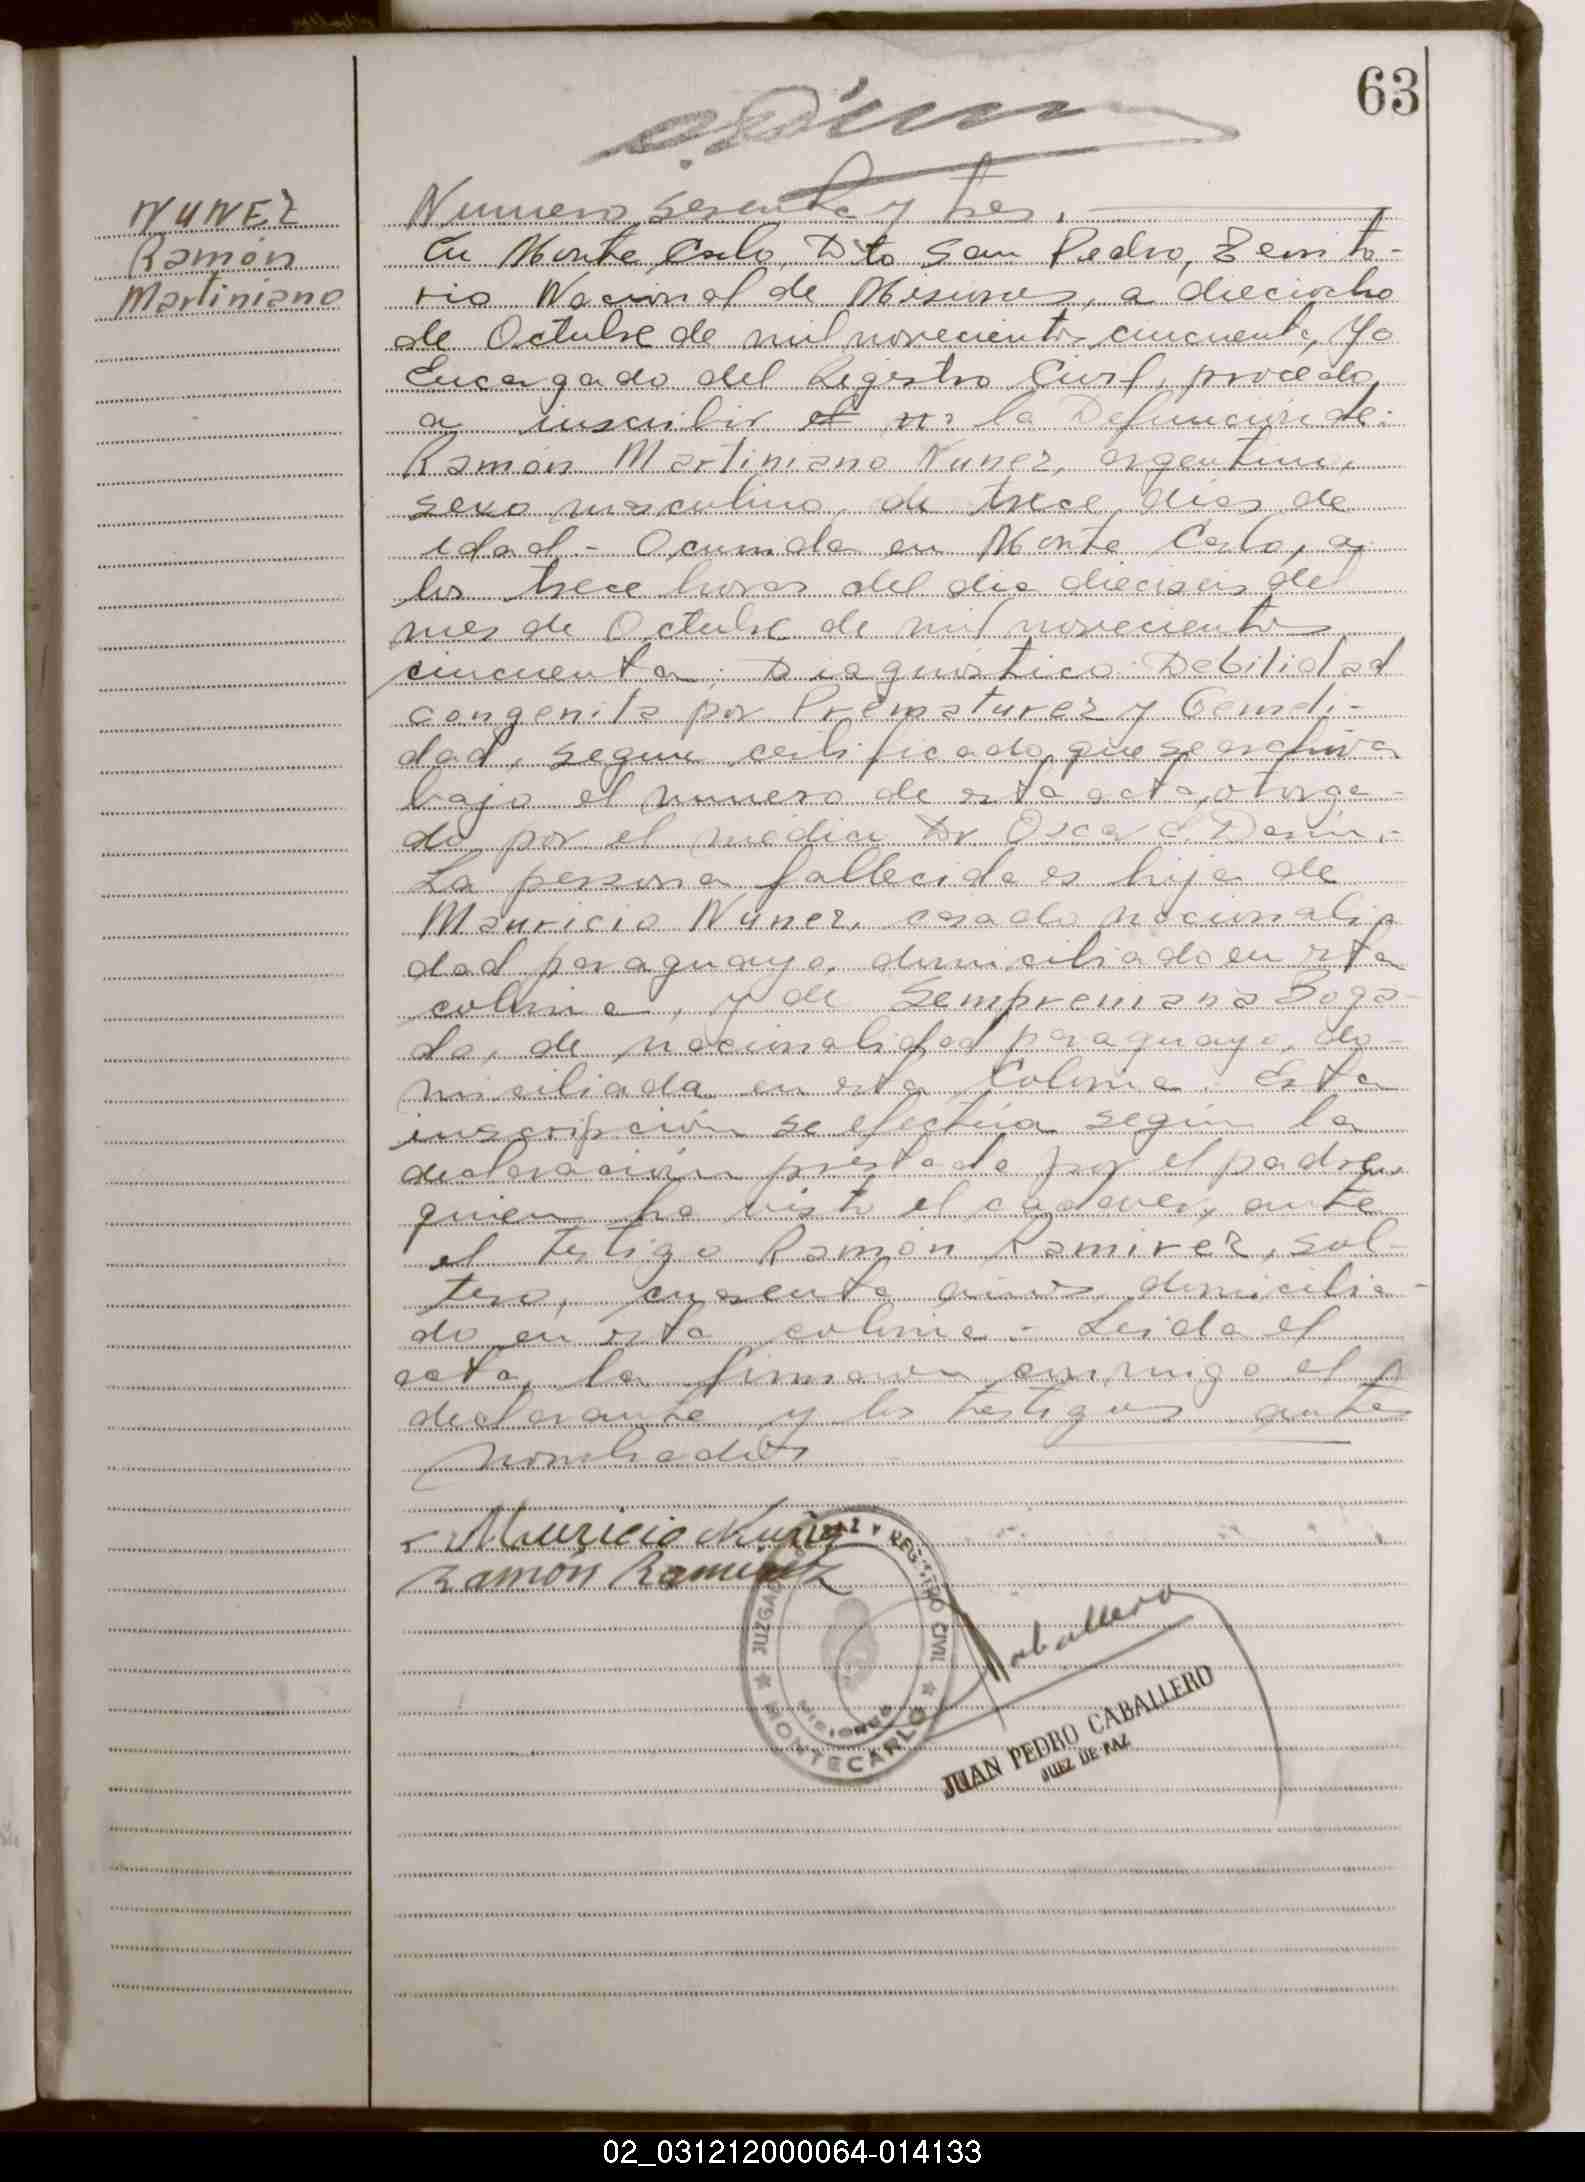 63
NUNEZ
Ramón
Martiniano
Numero sesenta y tres.
En Monte Carlo, Dto San Pedro, Territo-
rio Nacional de Misiones, a dieciocho
de Octubre de mil novecientos cincuenta, Yo
Encargado del Registro Civil, procedo
a inscribir el n: la Defuncion de:
Ramón Martiniano Nunez, argentino,
sexo masculino, de trece dias de
edad.- Ocurrida en Monte Carlo, a
las trece horas del dia dieciseis del
mes de Octubre de mil novecientos
cincuenta; Diagnóstico: Debilidad
congenita por Prematurez y Gemeli-
dad, segun certificado que se archiva
bajo el numero de esta acta, otorga-
do por el médico Dr Oscar
La persona fallecida es hija de
Mauricio Nunez, casado nacionali
dad paraguaya, domiciliado en esta
colonia, y de Sempreniana Boga-
do, de nacionalidad paraguaya, do-
miciliada en esta Colonia. Esta
inscripción se efectúa según la
declaración prestada por el padre,
quien ha visto el cadaver, ante
el testigo Ramón Ramirez, sol-
tero, cuarenta años, domicilia-
do en esta colonia.- Leida el
acta, la firmaron conmigo el
declarante y los testigos antes
nombrados
Mauricio Nuñez
Ramón Ramirez
JUZGADO DE PAZ Y REGISTRO CIVIL
MISIONES
MONTECARLO
Caballero
JUAN PEDRO CABALLERO
JUEZ DE PAZ
02_031212000064-014133